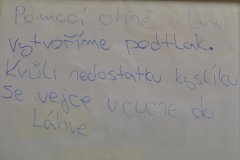 Pomocí ohně v láhvi
vytvoříme podtlak.
Kvůli nedostatku kyslíku
se vejce vcucne do
Láhve